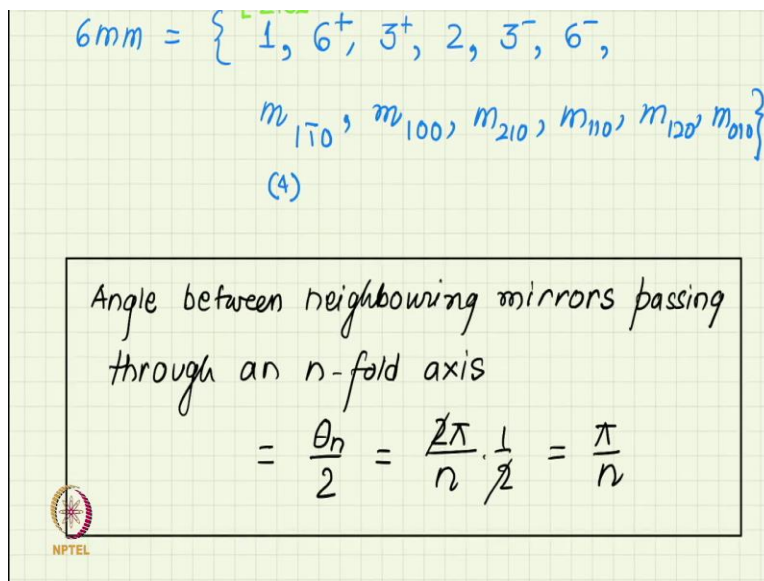 6mm = { 1, 6⁺, 3⁺, 2, 3⁻, 6⁻,
m₁₁̄₀, m₁₀₀, m₂₁₀, m₁₁₀, m₁₂₀, m₀₁₀}
(4)
Angle between neighbouring mirrors passing
through an n-fold axis
= θn/2 = 2π/n · 1/2 = π/n
NPTEL